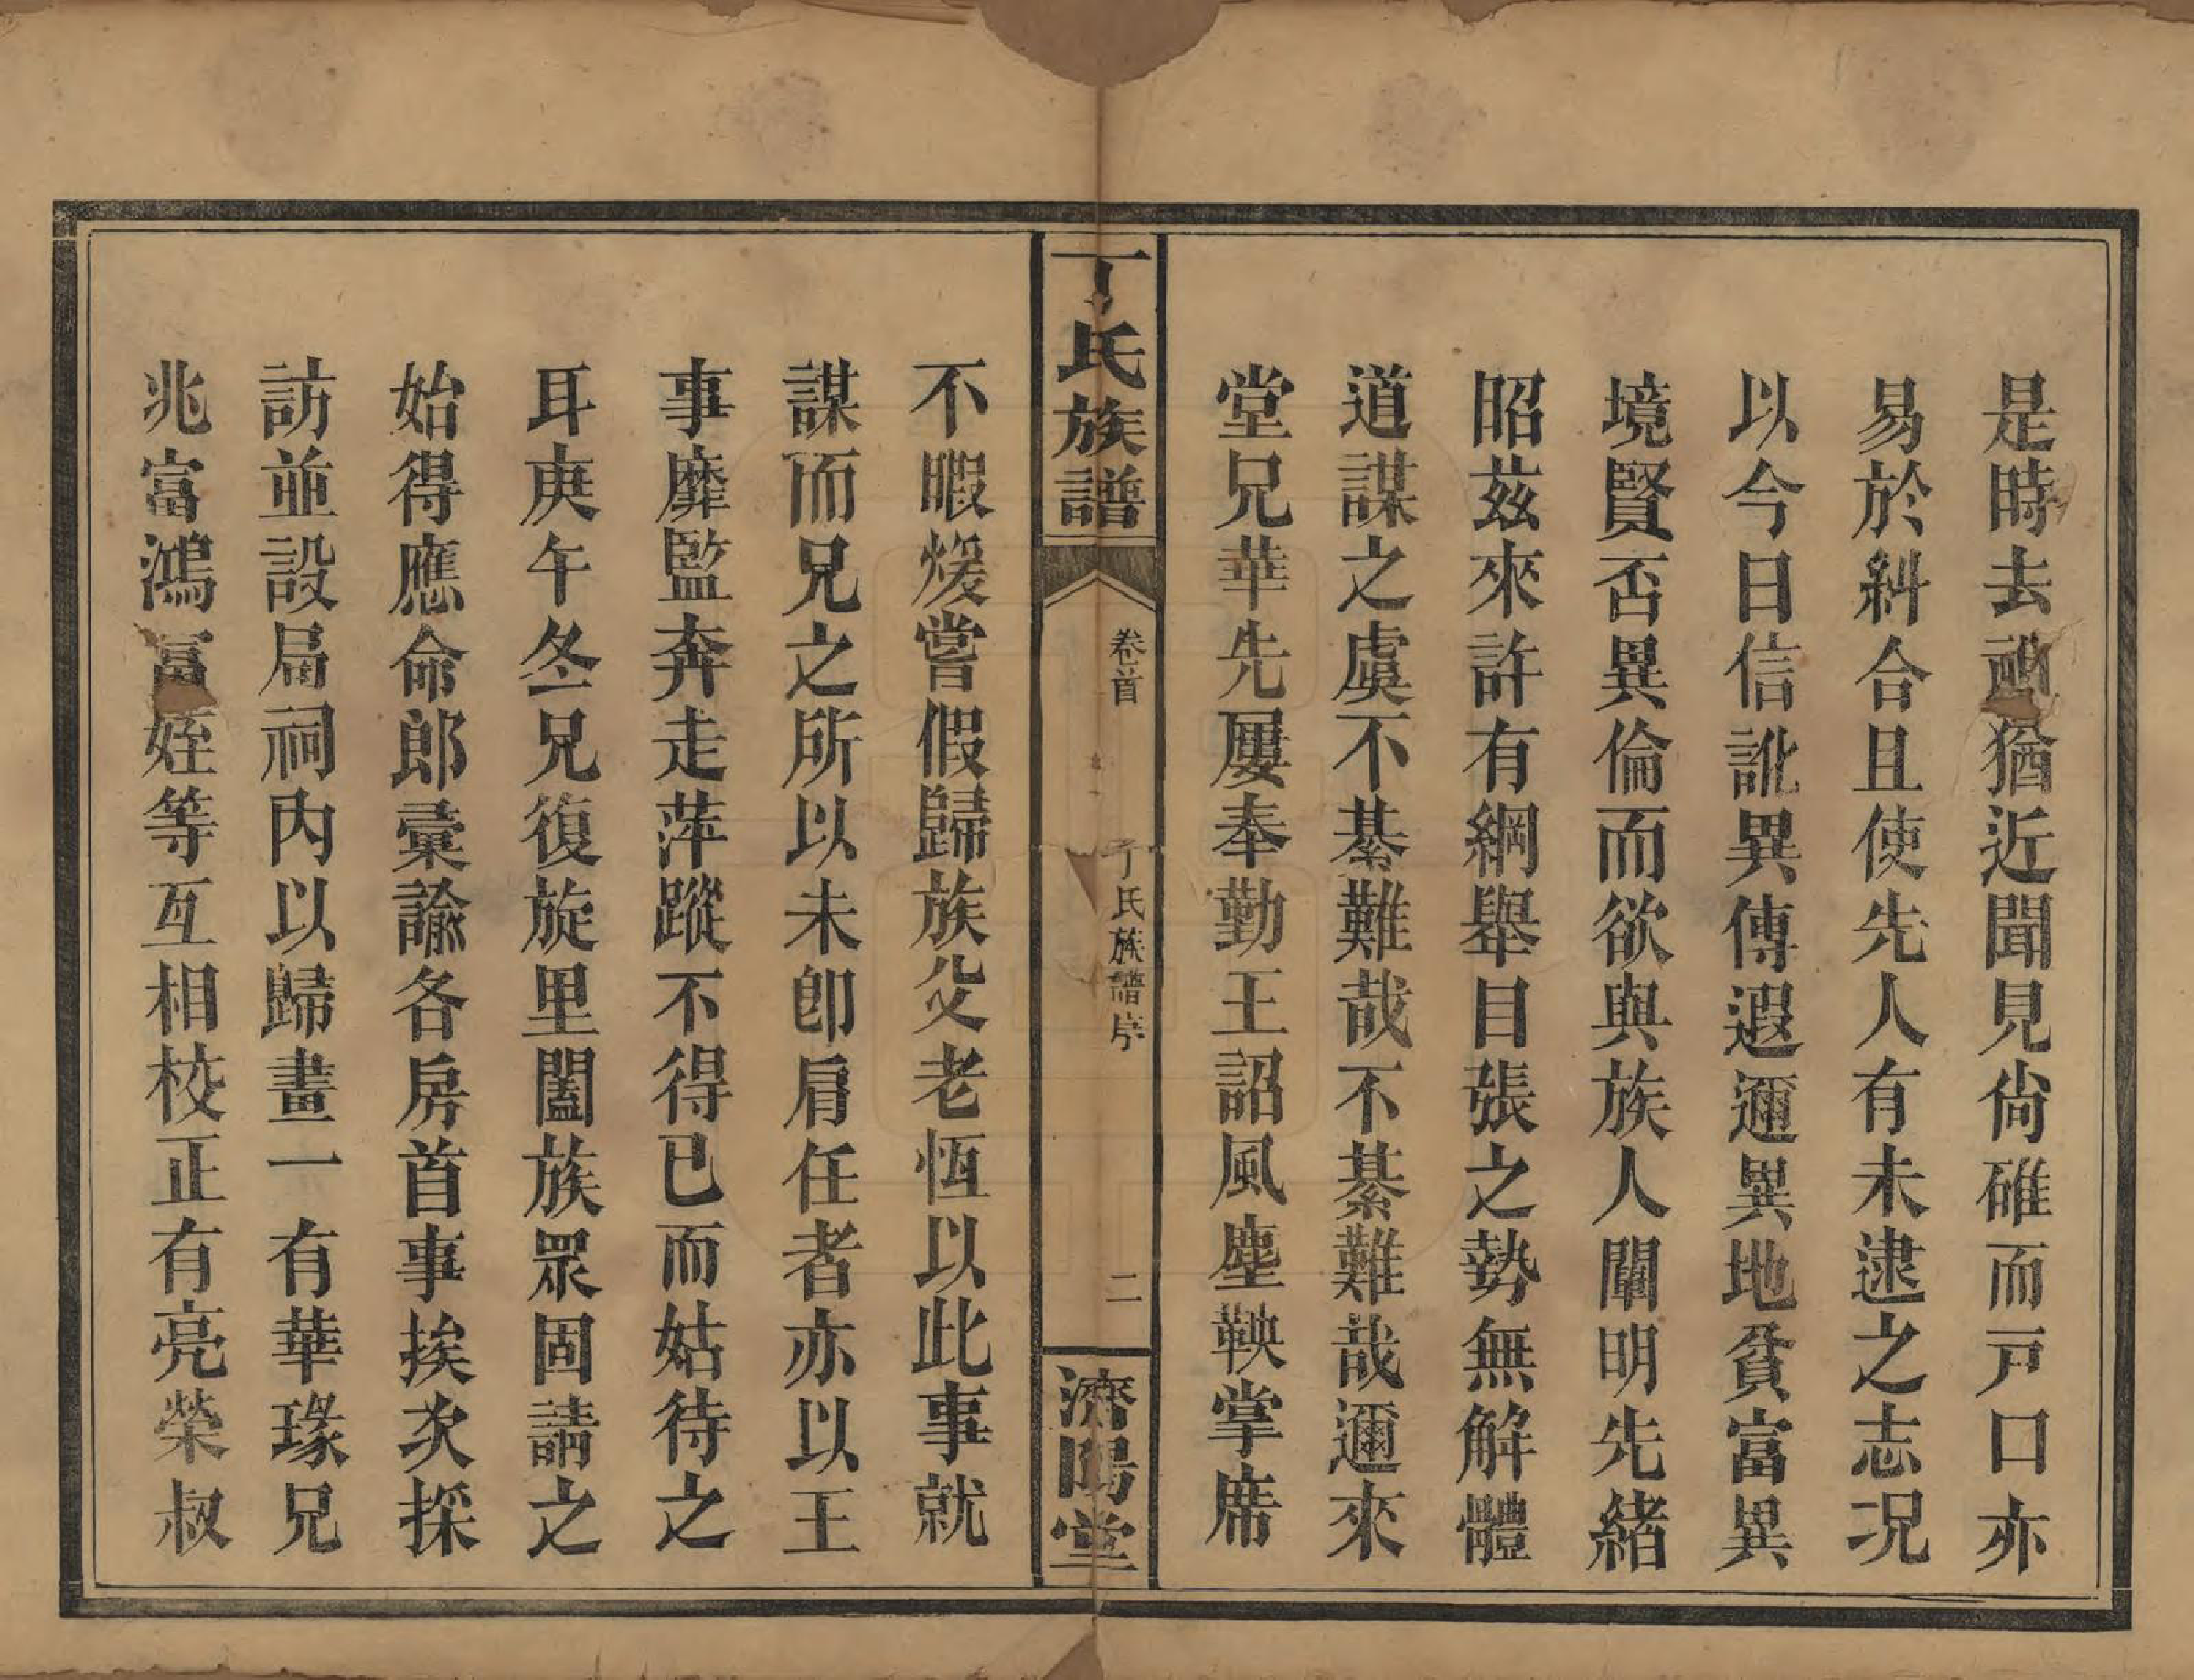 是時去謐猶近聞見尙確而戸口亦
易於糾合且使先人有未逮之志况
以今日信訛異傳遐邇異地貧富異
境賢否異倫而欲與族人闡明先緒
昭兹來許有綱舉目張之勢無解體
道謀之虞不綦難哉不綦難哉邇來
堂兄華先屢奉勤王詔風塵鞅掌席
丁氏族譜
卷首
丁氏族譜序
二
濟陽堂
不暇煖嘗假歸族父老恆以此事就
謀而兄之所以未卽肩任者亦以王
事靡監奔走萍蹤不得已而姑待之
耳庚午冬兄復旋里闔族眾固請之
始得應命郎彙諭各房首事挨次採
訪並設局祠內以歸畫一有華瑑兄
兆富鴻富姪等互相校正有亮榮叔